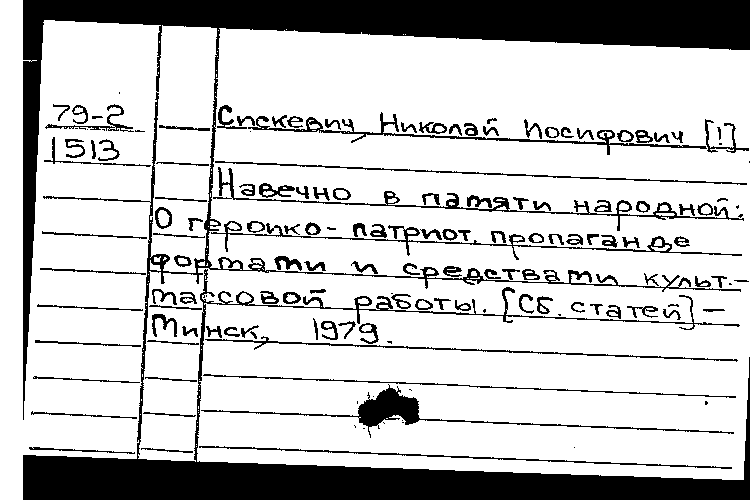 79-2
1513
Спскевич, Николай Иосифович [!]
Навечно в памяти народной:
О героико-патриот. пропаганде
формами и средствами культ.-
массовой работы. [Сб. статей] -
Минск, 1979.